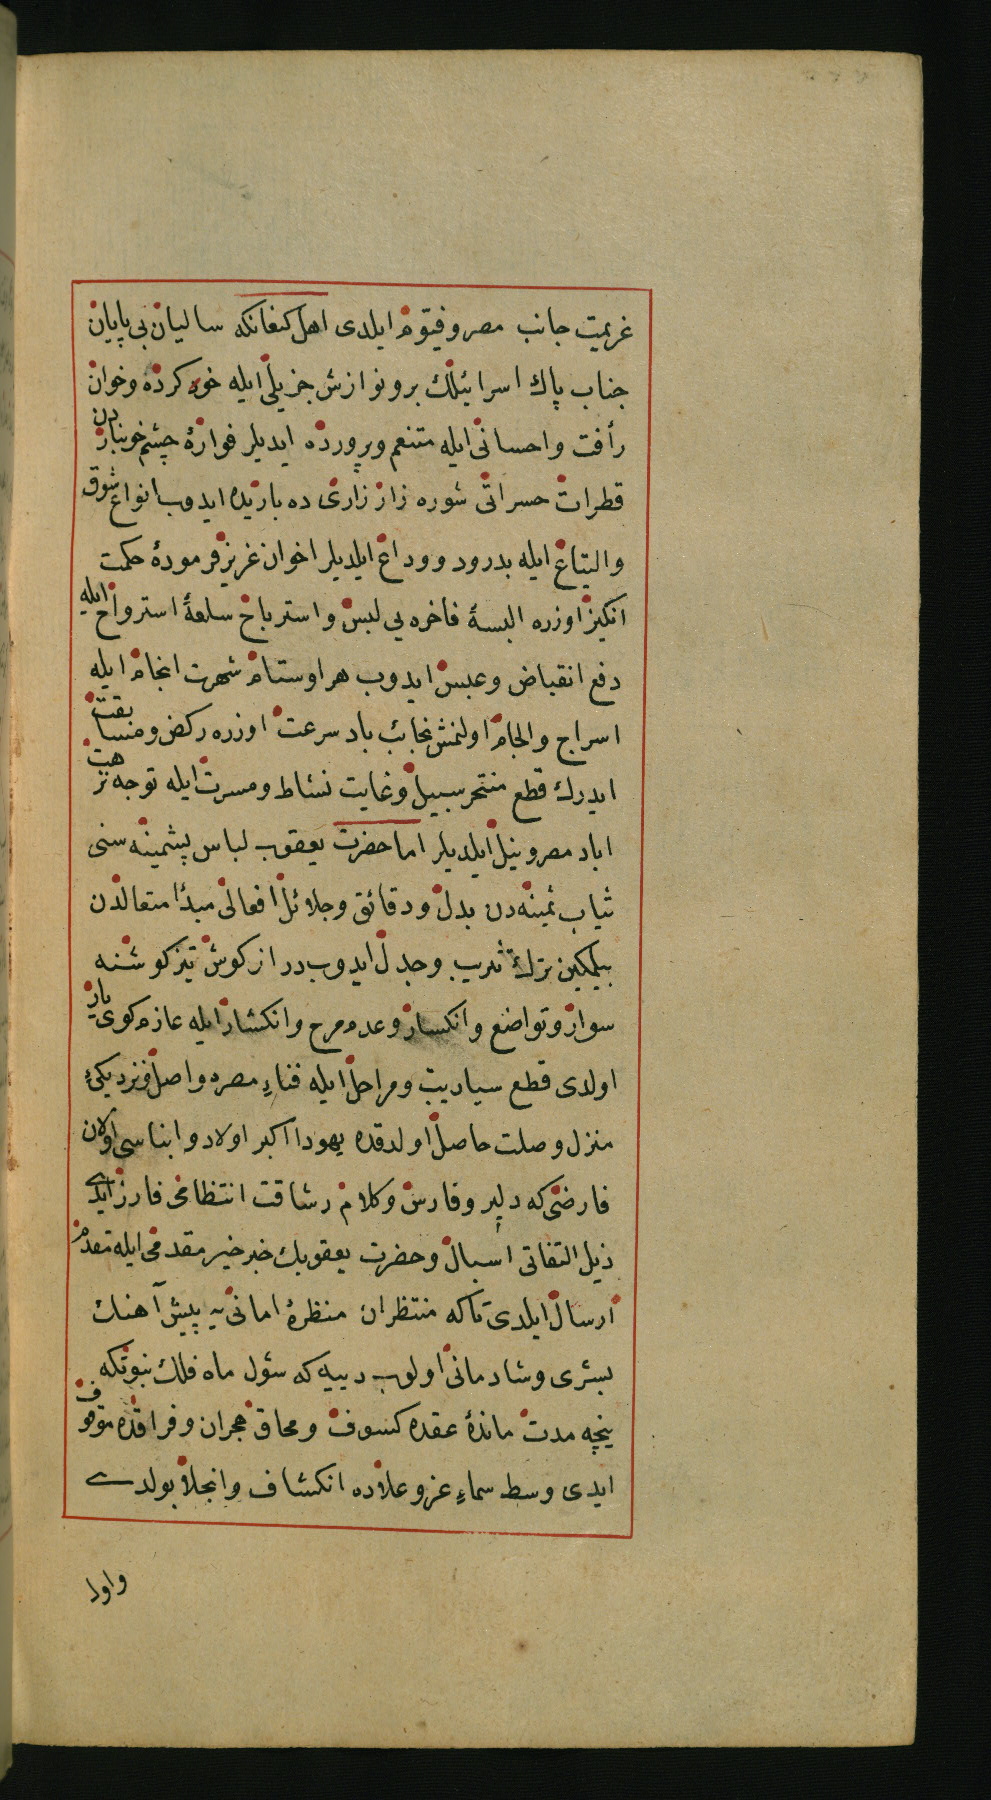 عزيمت جانب مصر و فيوم ايلدى اهل كنعانكه ساليان بى پايان
جناب پاك اسرائيلك بر و نوازش جزيلى ايله خود كرده و خوان
رأفت و احسانى ايله متنعم و پرورده ايديلر فوارۀ چشم خونباردن
قطرات حسراتى شوره زار زارى ده باريده ايدوب انواع شوق
والتياغ ايله بدرود و وداع ايلديلر اخوان عزيز فرمودۀ حكمت
انكيز اوزره البسۀ فاخره يى لبس و استرباح سلعۀ استرواح ايله
دفع انقباض و عبس ايدوب هر اوستام شهرت انجام ايله
اسراج والجام اولنمش نجائب باد سرعت اوزره ركض و مسابقت
ايدرك قطع سبيل و غايت نشاط و مسرت ايله توجه نزهت
اباد مصر و نيل ايلديلر اما حضرت يعقوب لباس پشمينه سنى
ثياب ثمينه دن بدل و دقائق و جلائل افعالى مبدأ متعالدن
بيلمكين ترك تثريب و جدل ايدوب دراز كوش تيزكوشنه
سوار و تواضع و انكسار و عدم مرح و انكشار ايله عازم كوى يار
اولدى قطع سباريت و مراحل ايله فناء مصره واصل و نزديكئ
منزل وصلت حاصل اولدقده يهودا اكبر اولاد و ابناسى اولان
فارضى كه دلير و فارس و كلام رشاقت انتظامى فارز ايدى
ذيل التفاتى اسبال و حضرت يعقوبك خبر خير مقدمى ايله تقدم
ارسال ايلدى تا كه منتظران منظرۀ امانى يه پيش آهنك
بشرى و شادمانى اولوب دييه كه شول ماه فلك نبوتكه
نيچه مدت ماندۀ عقدۀ كسوف و محاق هجران و فراقده موقوف
ايدى وسط سماء عز و علاده انكشاف و انجلا بولدى
واول